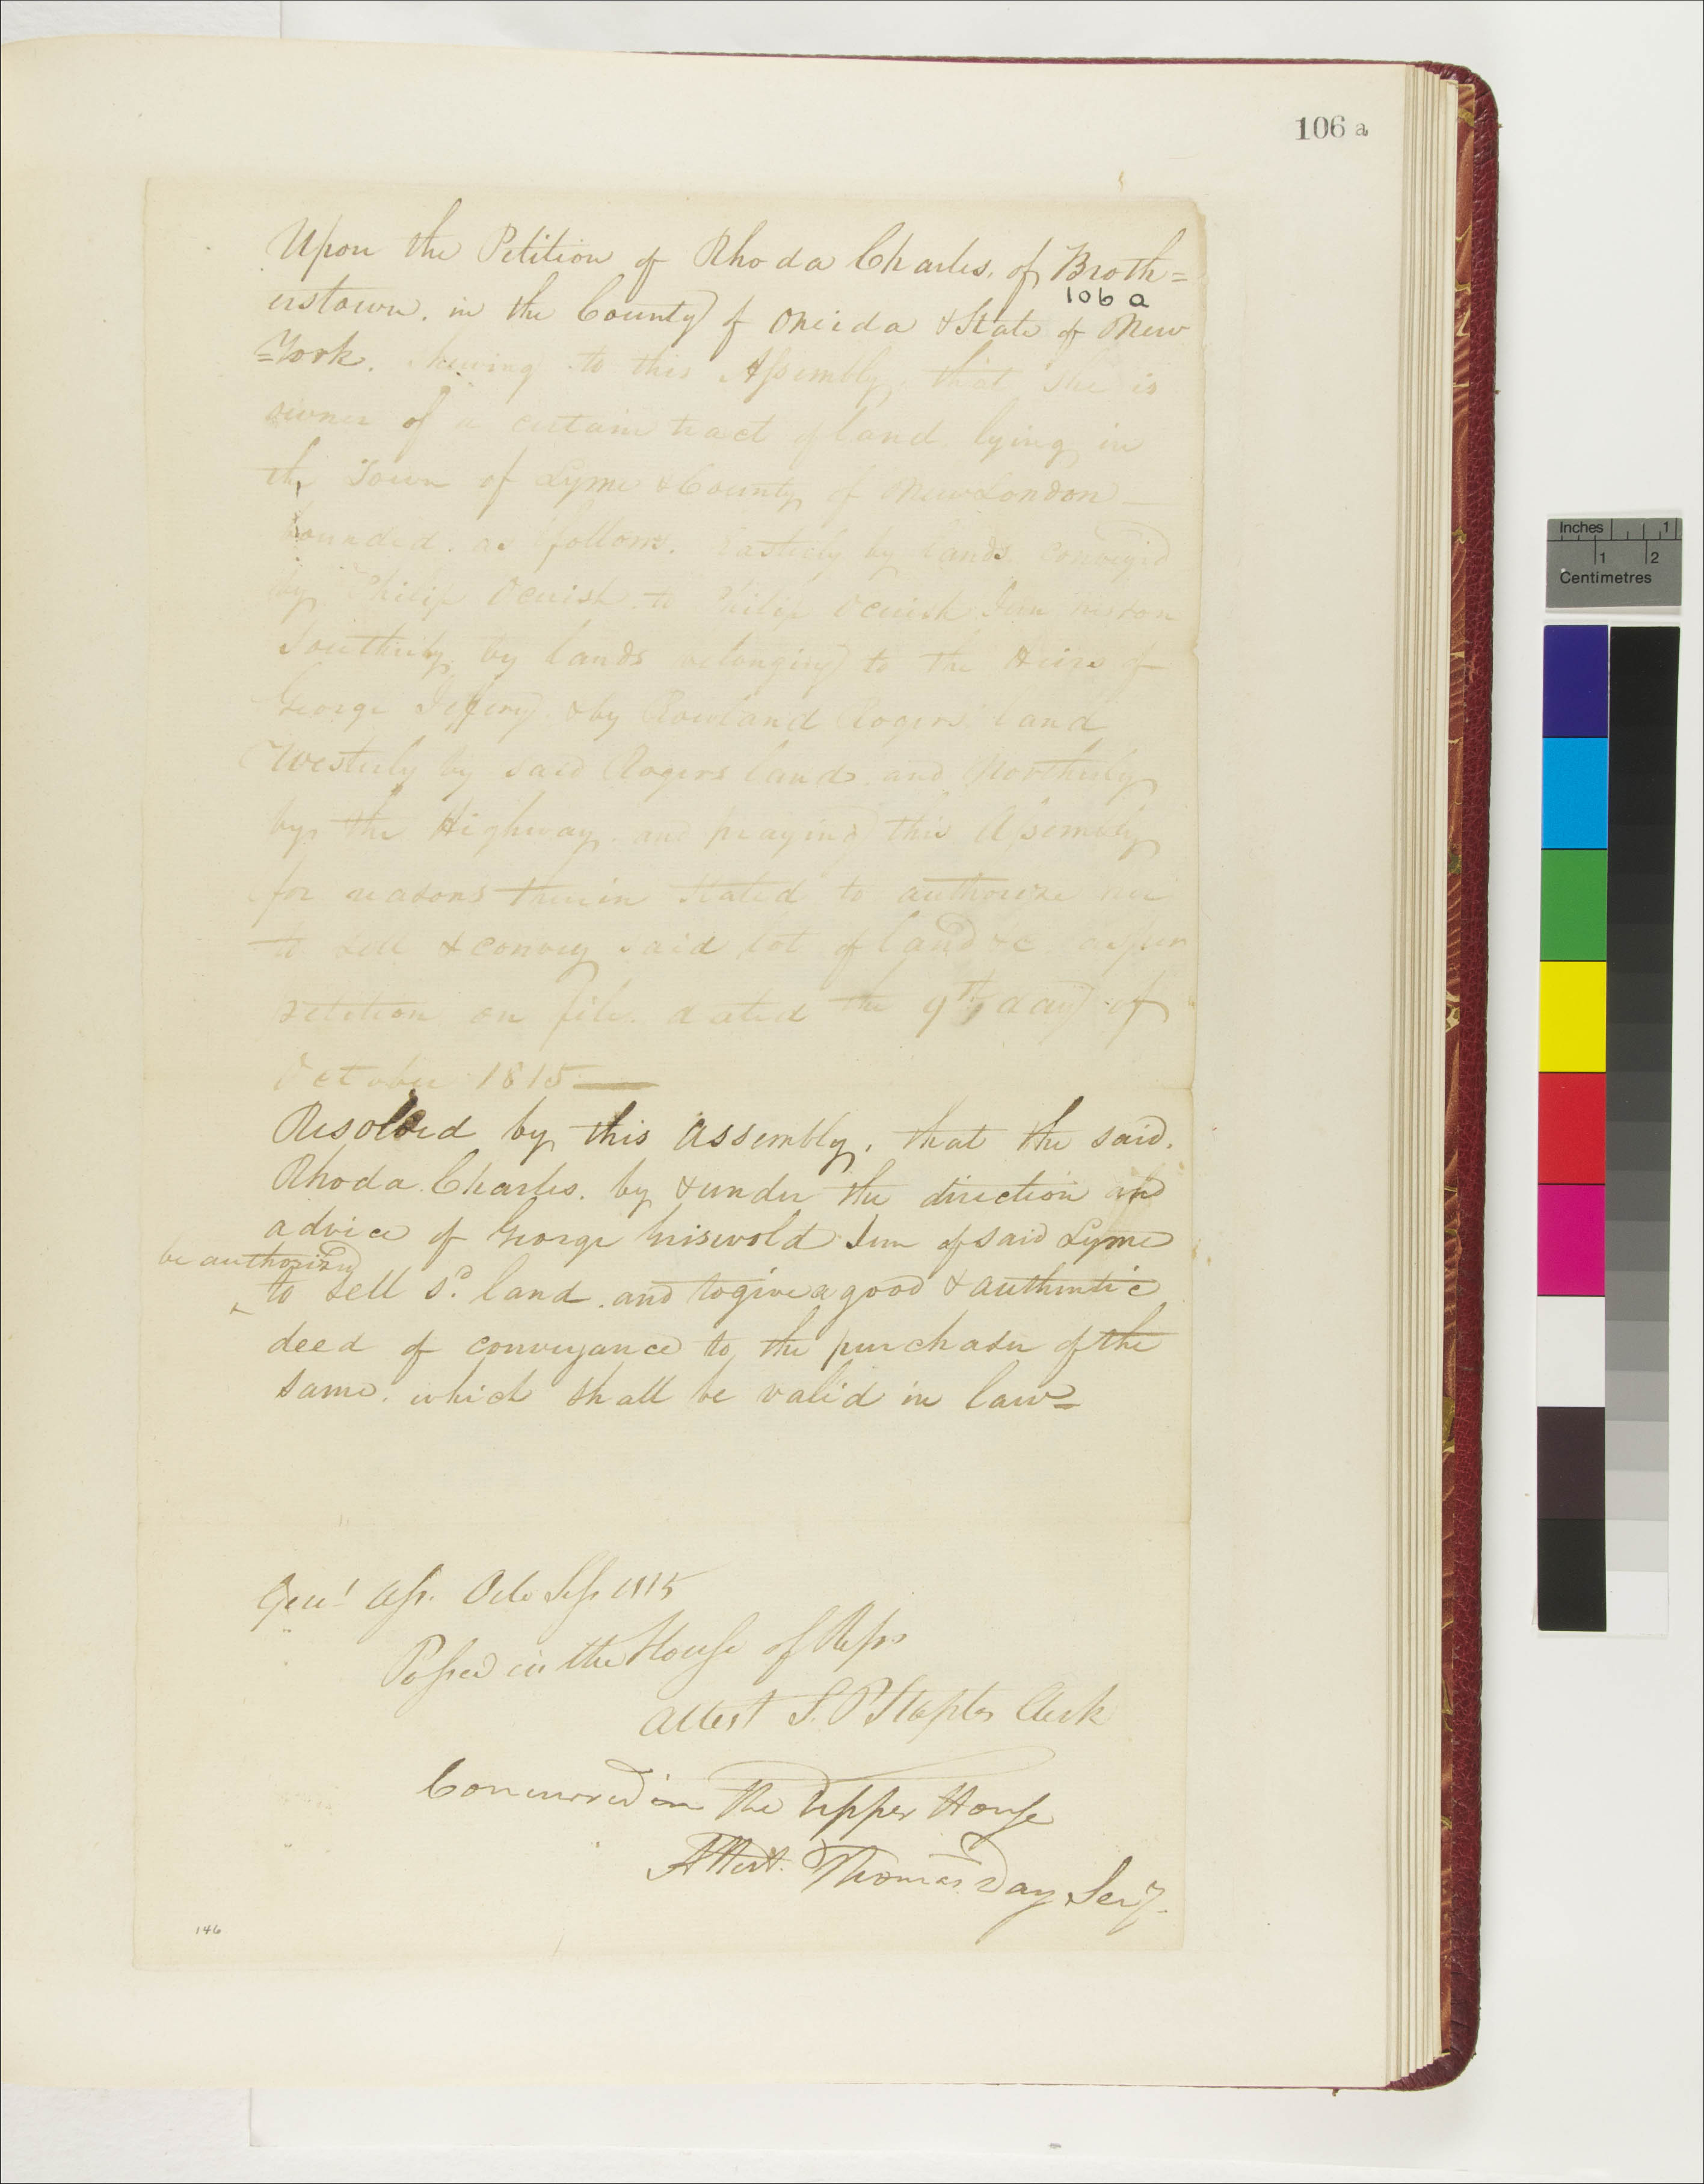 106 a
Upon the Petition of Rhoda Charles, of Broth=
106 a
erstown. in the County of Oneida & State of New
=York. Shewing to this Assembly, that she is
owner of a certain tract of land lying in
the Town of Lyme & County of New London —
bounded as follows. Easterly by lands conveyed
by Philip Ocuish to Philip Ocuish Jun his son
Southerly by lands belonging to the Heirs of
George Jeffery & by Rowland Rogers land
Westerly by said Rogers land and Northerly
by the Highway. and praying this Assembly
for reasons therein stated to authorize her
to sell & convey said lot of land &c as per
petition on file. dated the 9th day of
October 1815 —
Resolved by this Assembly, that the said.
Rhoda Charles. by & under the direction and
advice of George Griswold Jun of said Lyme
be authorized
to sell sd. land. and to give a good & authentic
deed of conveyance to the purchaser of the
same. which shall be valid in law =
Genl Ass. Octo Sess 1815
Passed in the House of Reps
Attest S. P Staples Clerk
Concurred in The Upper House
Attest. Thomas Day Secy.
146
Inches 1
1 2
Centimetres